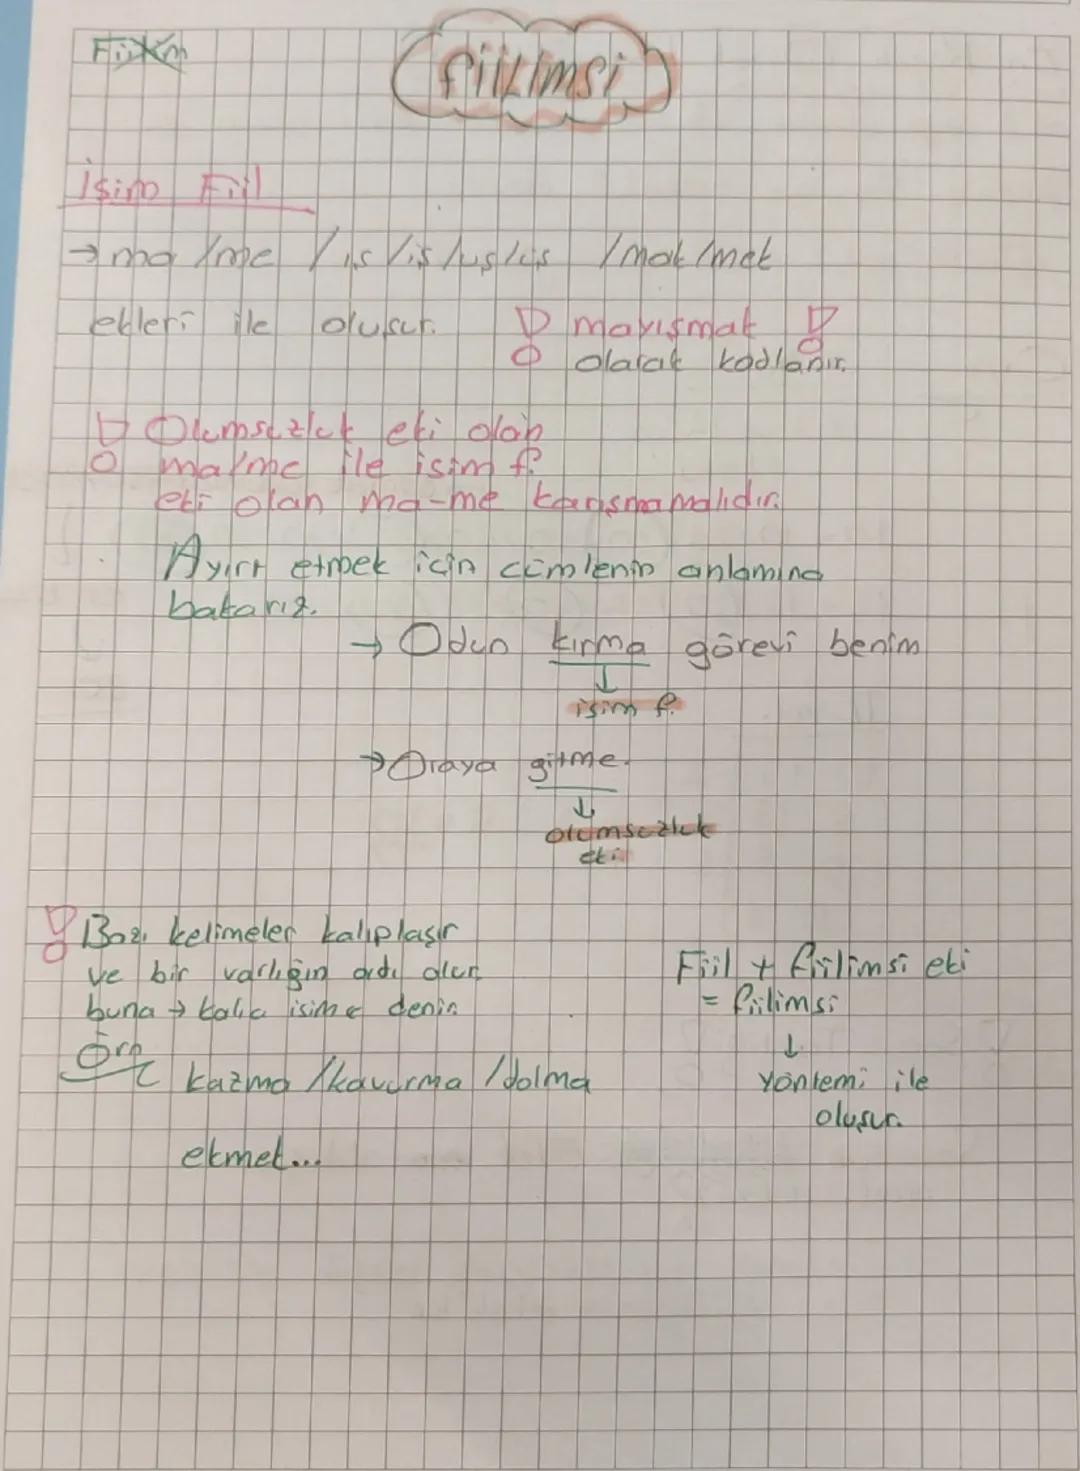 fiilimsi
İsim Fiil
→ ma /me /ış/iş/uş/üş /mak/mek
ekleri ile oluşur. ! mayışmak !
olarak kodlanır.
! Olumsuzluk eki olan
ma/me ile isim f.
eki olan ma-me karışmamalıdır.
Ayırt etmek için cümlenin anlamına
bakarız.
→ Odun kırma görevi benim
↓
isim f.
→ Oraya gitme.
↓
olumsuzluk
eki
! Bazı kelimeler kalıplaşır
ve bir varlığın adı olur
buna → kalıcı isim denir.
Örn
kazma /kavurma /dolma
ekmek...
Fiil + fiilimsi eki
= fiilimsi
↓
yöntemi ile
oluşur.